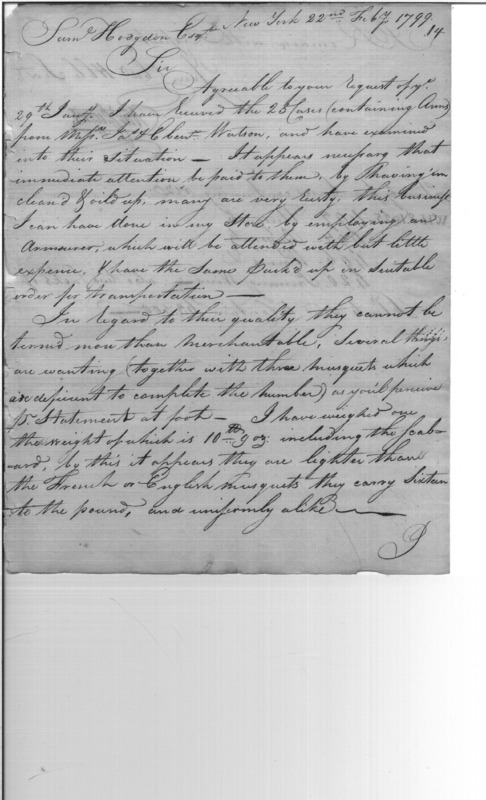 New York 22nd Feby. 1799
14
Saml. Hodgdon Esqr.
Sir
Agreable to your Request of ye.
29th Jany. I have Received the 25 Cases (containing Arms)
from Messrs. Jas. & Ebenr. Watson, and have examined
into their Situation — It appears necessary that
immediate attention be paid to them, by having em
clean'd & oild up, many are very Rusty, this business
I can have done in my Store by employing an
Armourer, which will be attended with but little
expence, & have the Same Pack'd up in Suitable
order for transportation —
In regard to their quality they cannot be
termed more than merchantable, Several things
are wanting (together with three musquets which
are deficient to complete the number) as you'll perceive
pr. Statement at foot — I have weighed one
the weight of which is 10 lb 9 oz: including the Scab-
bard, by this it appears they are lighter than
the French or English musquets they carry Sixteen
to the pound, and uniformly alike —